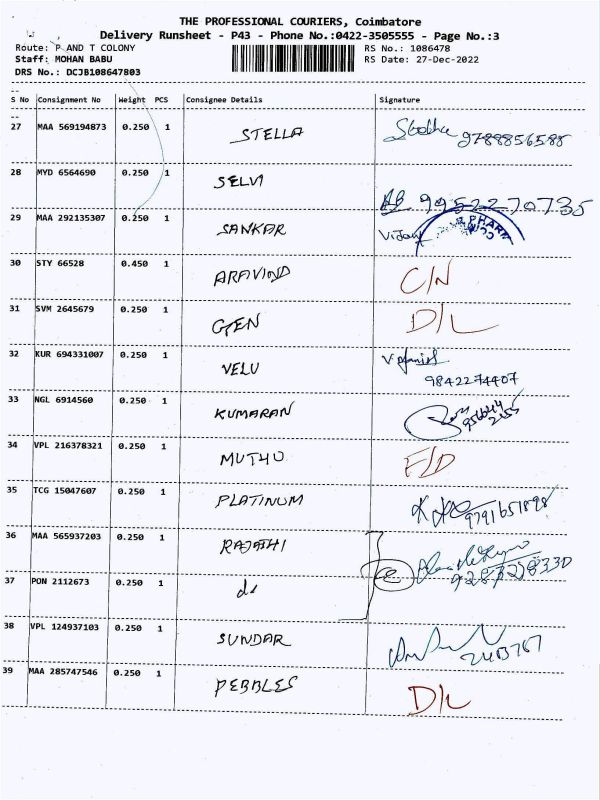 THE PROFESSIONAL COURIERS, Coimbatore
Delivery Runsheet - P43 - Phone No.:0422-3505555 - Page No.:3
Route: P AND T COLONY RS No.: 1086478
Staff: MOHAN BABU RS Date: 27-Dec-2022
DRS No.: DCJB108647803
S No Consignment No Weight PCS Consignee Details Signature
27 MAA 569194873 0.250 1 STELLA 9788856588
28 MYD 6564690 0.250 1 SELVI 9952270735
29 MAA 292135307 0.250 1 SANKAR Vijay
30 STY 66528 0.450 1 ARAVIND C/N
31 SVM 2645679 0.250 1 GEN D/L
32 KUR 694331007 0.250 1 VELU
9842274407
33 NGL 6914560 0.250 1 KUMARAN
34 VPL 216378321 0.250 1 MUTHU F/D
35 TCG 15047607 0.250 1 PLATINUM 9791651898
36 MAA 565937203 0.250 1 RAJATHI
37 PON 2112673 0.250 1 do
38 VPL 124937103 0.250 1 SUNDAR
39 MAA 285747546 0.250 1 PEBBLES D/L